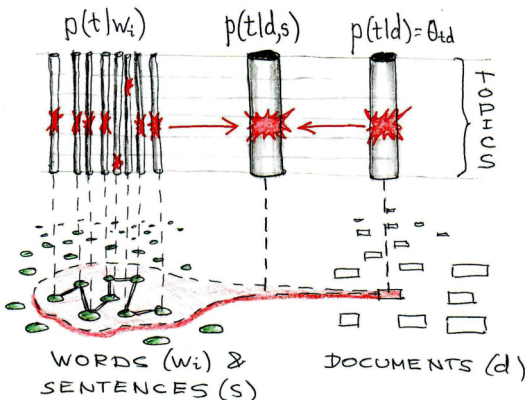 p(t|wi)
p(t|d,s)
p(t|d)=θtd
TOPICS
WORDS (wi) &
SENTENCES (s)
DOCUMENTS (d)